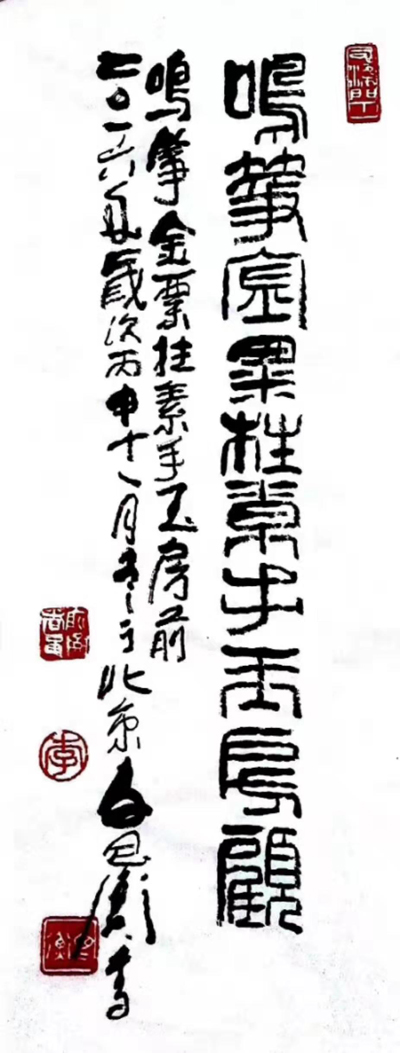 鳴箏金粟柱素手玉房顧
鳴箏金粟柱素手玉房前
二〇一六年歲次丙申十一月書于北京
李